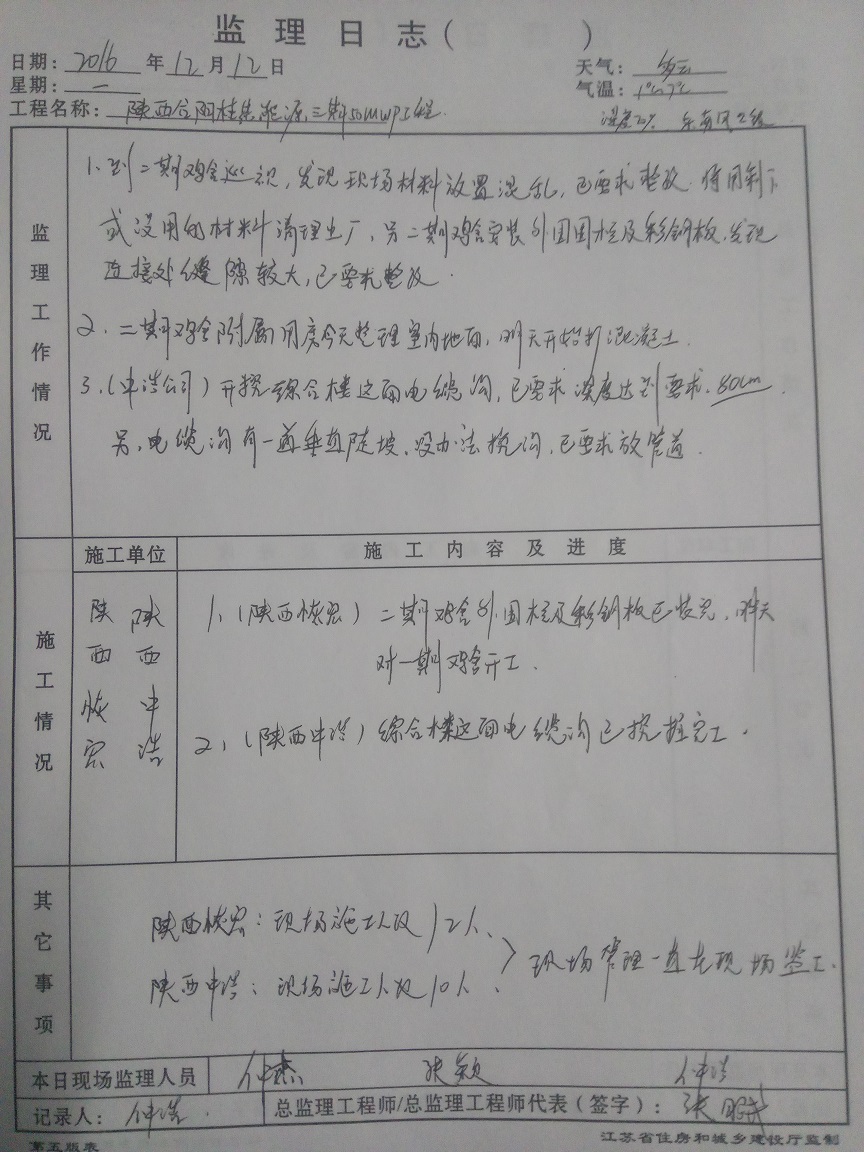 监理日志( )
日期: 2016 年 12 月 12 日 天气: 多云
星期: 一 气温: 1℃-7℃
工程名称: 陕西合阳桂 能源三期50MWP工程 湿度 % 东南风2级
监理工作情况
1、到二期鸡舍巡视,发现现场材料放置混乱,已要求整改.将用剩下
或没用的材料清理出厂,另二期鸡舍安装外围围栏及彩钢板,发现
连接处缝隙较大,已要求整改.
2.二期鸡舍附属用房今天整理室内地面,明天开始打混凝土.
3.(中浩公司)开挖综合楼这面电缆沟,已要求深度达到要求.80cm.
另,电缆沟有一道垂直陡坡,没办法挖沟,已要求放管道.
施工情况
施工单位 施工内容及进度
陕西恢宏 陕西中浩
1、(陕西恢宏)二期鸡舍外围栏及彩钢板已装完,明天
对一期鸡舍开工.
2、(陕西中浩)综合楼这面电缆沟已挖掘完工.
其它事项
陕西恢宏:现场施工人员12人、
陕西中浩:现场施工人员10人. 〉现场管理一直在现场监工.
本日现场监理人员 仲杰 张颖 仲浩
记录人: 仲浩. 总监理工程师/总监理工程师代表(签字): 张
第五版表 江苏省住房和城乡建设厅监制